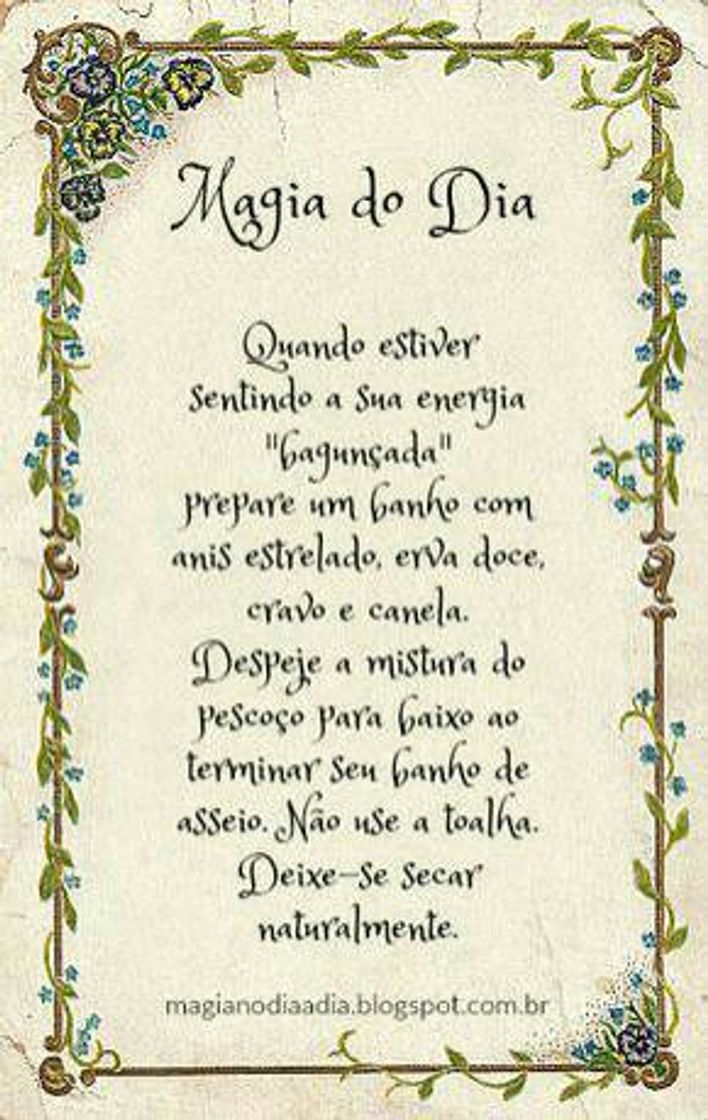 Magia do Dia
Quando estiver
sentindo a sua energia
"bagunçada"
prepare um banho com
anis estrelado, erva doce,
cravo e canela.
Despeje a mistura do
pescoço para baixo ao
terminar seu banho de
asseio. Não use a toalha.
Deixe-se secar
naturalmente.
magianodiaadia.blogspot.com.br